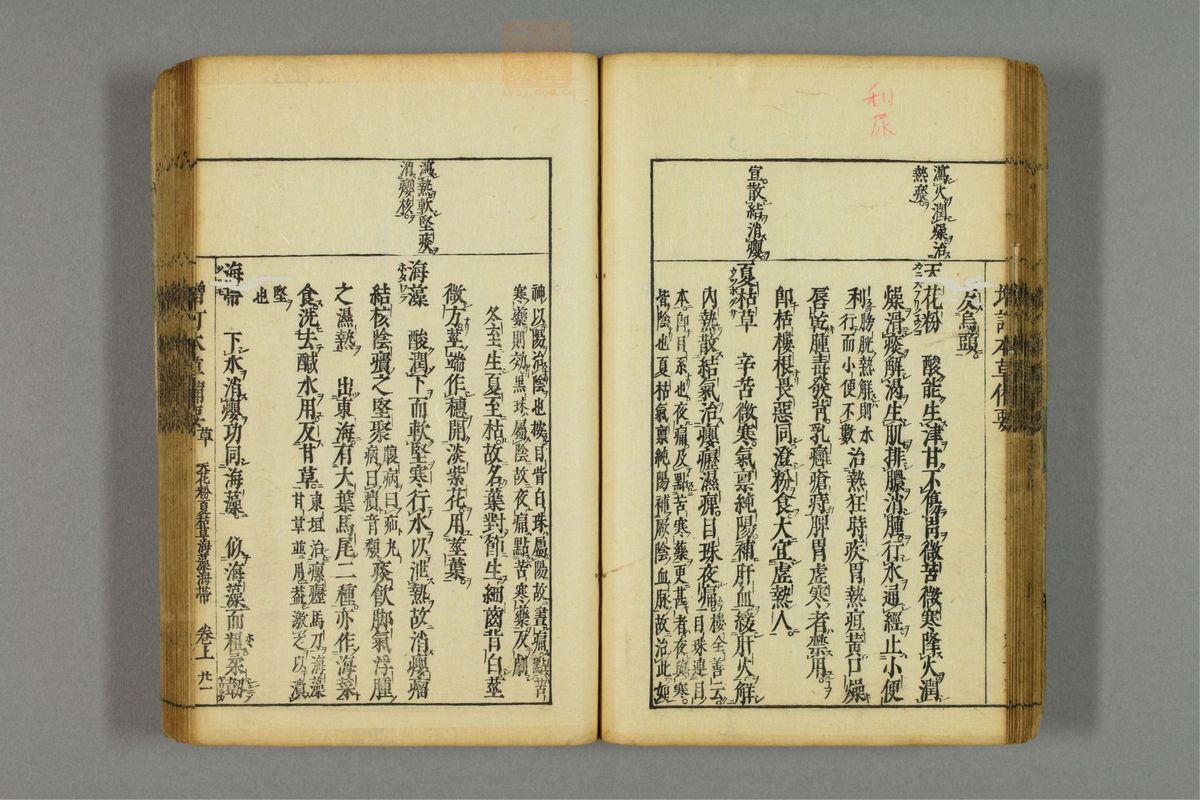 利
尿
增訂本草備要
反烏頭。
瀉火潤燥治
熱痰
天花粉 酸能生津甘不傷胃微苦微寒降火潤
燥滑痰解渴生肌排膿消腫行水通經止小便
利膀胱熱解則水
行而小便不數
治熱狂時疾胃熱疸黃口燥
唇乾腫毒發背乳癰瘡痔脾胃虛寒者禁用。
即栝樓根畏惡同澄粉食大宜虛熱人。
宣散結消癭
夏枯草 辛苦微寒氣稟純陽補肝血緩肝火解
內熱散結氣治癭癧濕痺目珠夜痛
樓全善云
目珠連目
本即目系也夜痛及點苦寒藥更甚者夜與寒
皆陰也夏枯氣稟純陽補厥陰血脈故治此如
神以陽治陰也按目昔白珠屬陽故晝痛點苦
寒藥則効黑珠屬陰故夜痛點苦寒藥反劇
冬至生夏至枯故名葉對節生細齒背白莖
微方莖端作穗開淡紫花用莖葉。
瀉熱軟堅痰
消癭核
海藻 酸潤下而軟堅寒行水以泄熱故消癭瘤
結核陰㿉之堅聚
腹病曰疝丸
病曰㿉音頹
痰飲脚氣浮腫
之濕熱 出東海有大葉馬尾二種亦作海菜
食洗去鹹水用反甘草
東垣治瘰癧馬刀海藻
甘草並用蓋激之以潰
堅
也
海帶 下水消癭功同海藻。 似海藻而粗柔韌
增訂本草備要 草 天花粉夏枯草海藻海帶 卷上 廿一